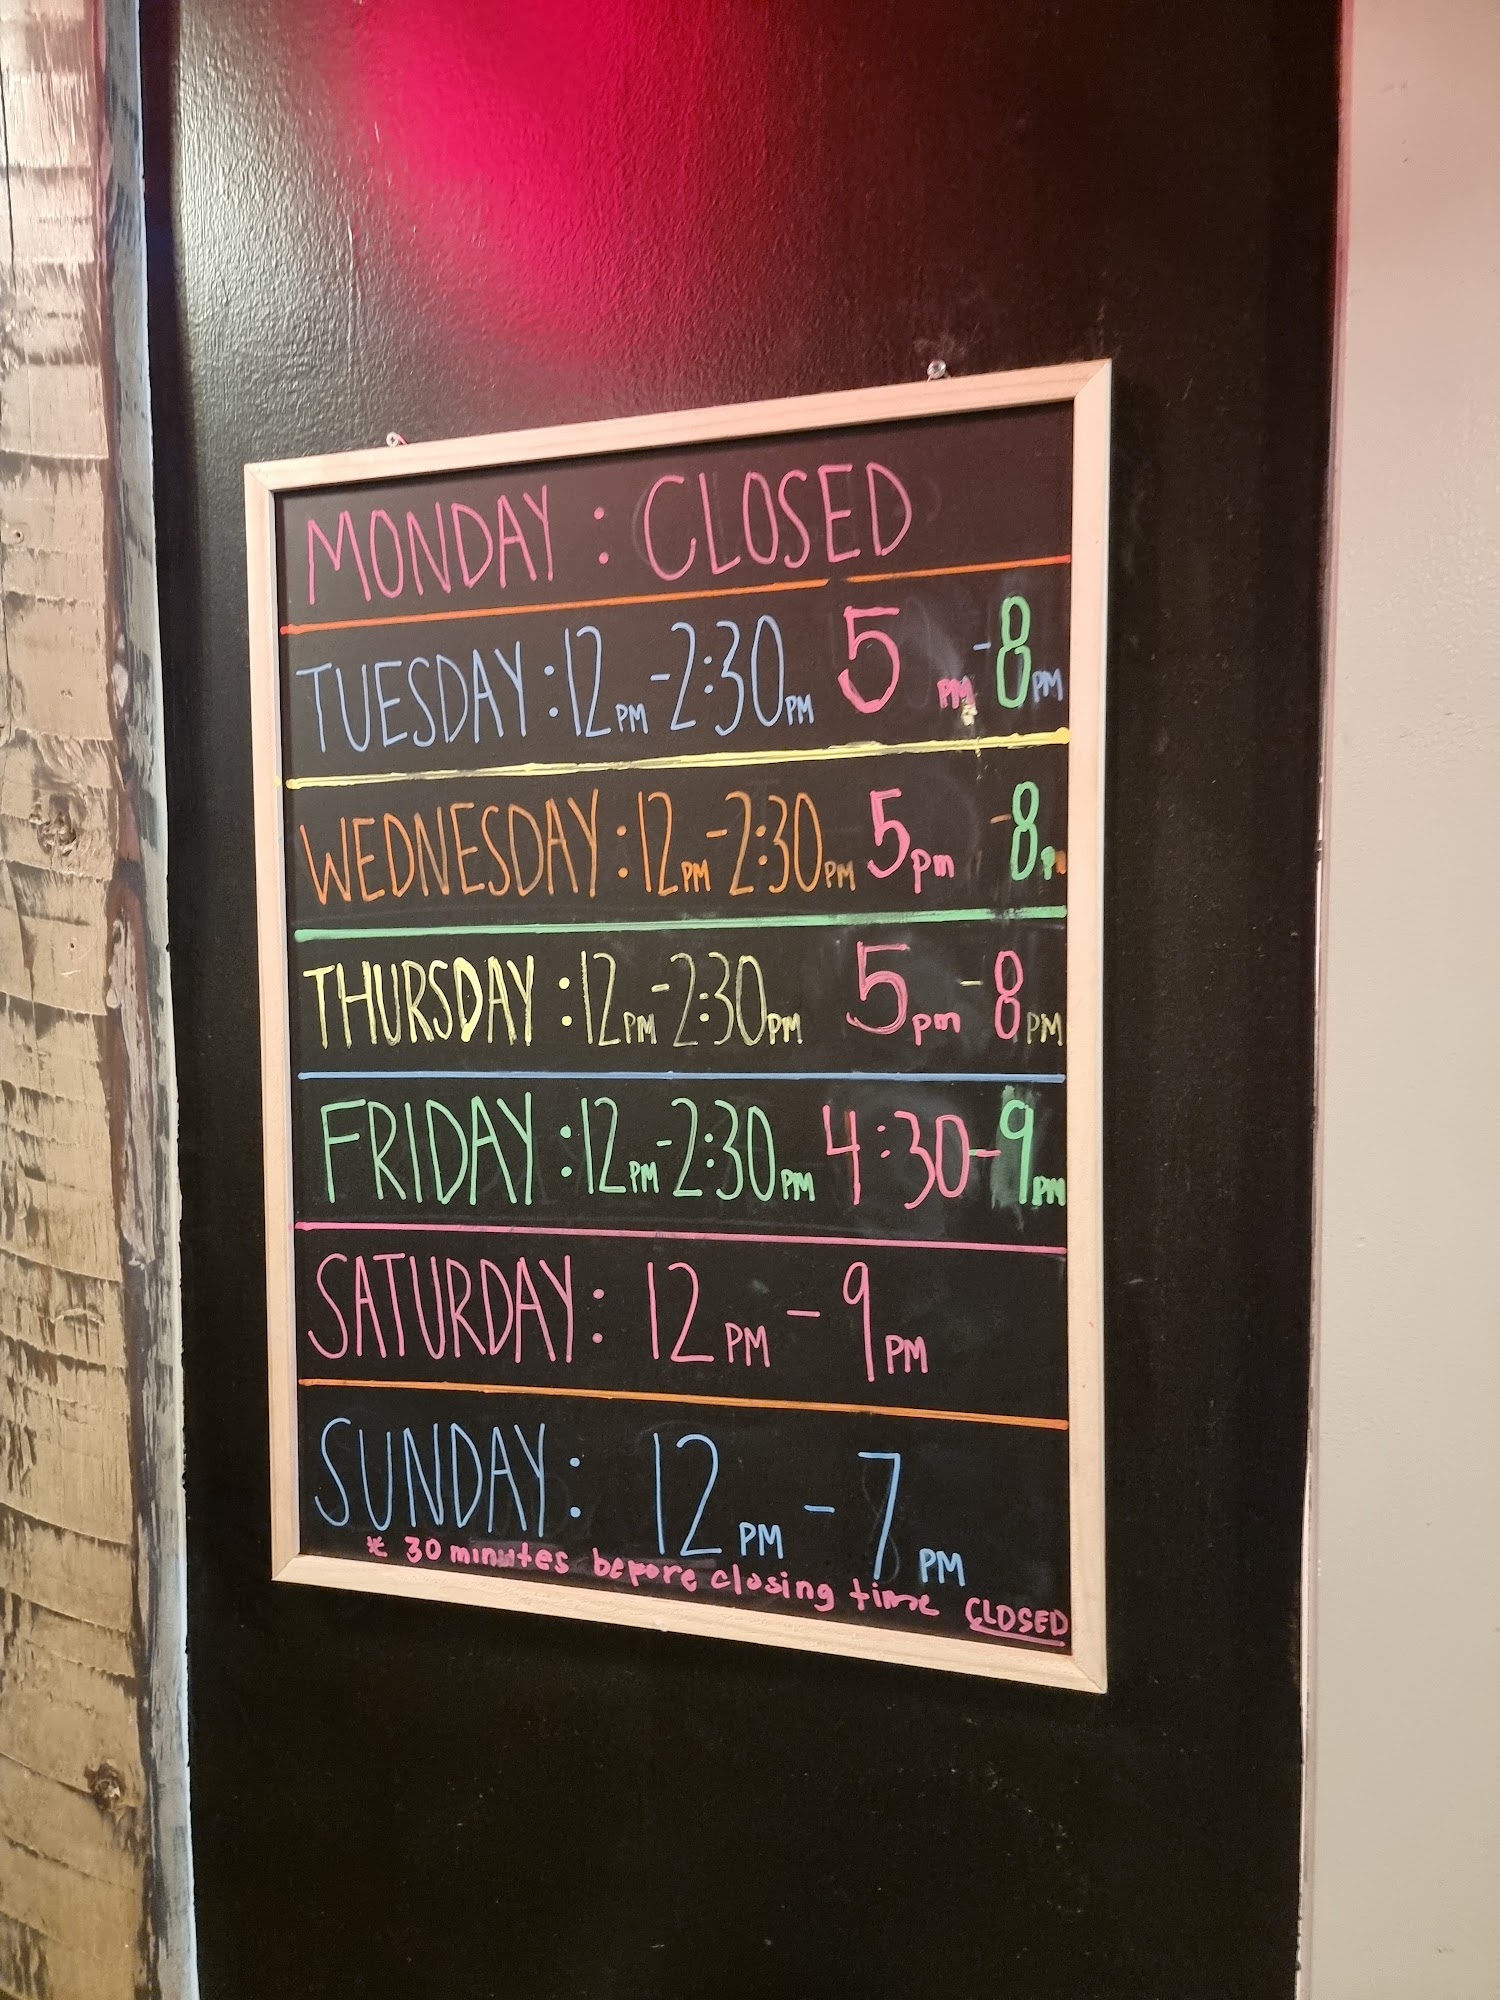 MONDAY : CLOSED
TUESDAY : 12 PM - 2:30 PM 5 PM - 8 PM
WEDNESDAY : 12 PM - 2:30 PM 5 pm - 8 P
THURSDAY : 12 PM - 2:30 PM 5 pm - 8 PM
FRIDAY : 12 PM - 2:30 PM 4:30 - 9 PM
SATURDAY : 12 PM - 9 PM
SUNDAY : 12 PM - 7 PM
* 30 minutes before closing time CLOSED